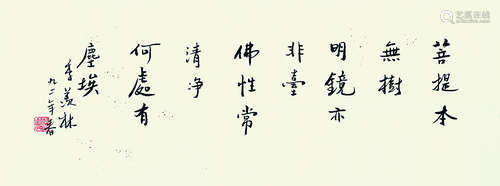 菩提本
無樹
明鏡亦
非臺
佛性常
清净
何處有
塵埃
季羡林
九二年春